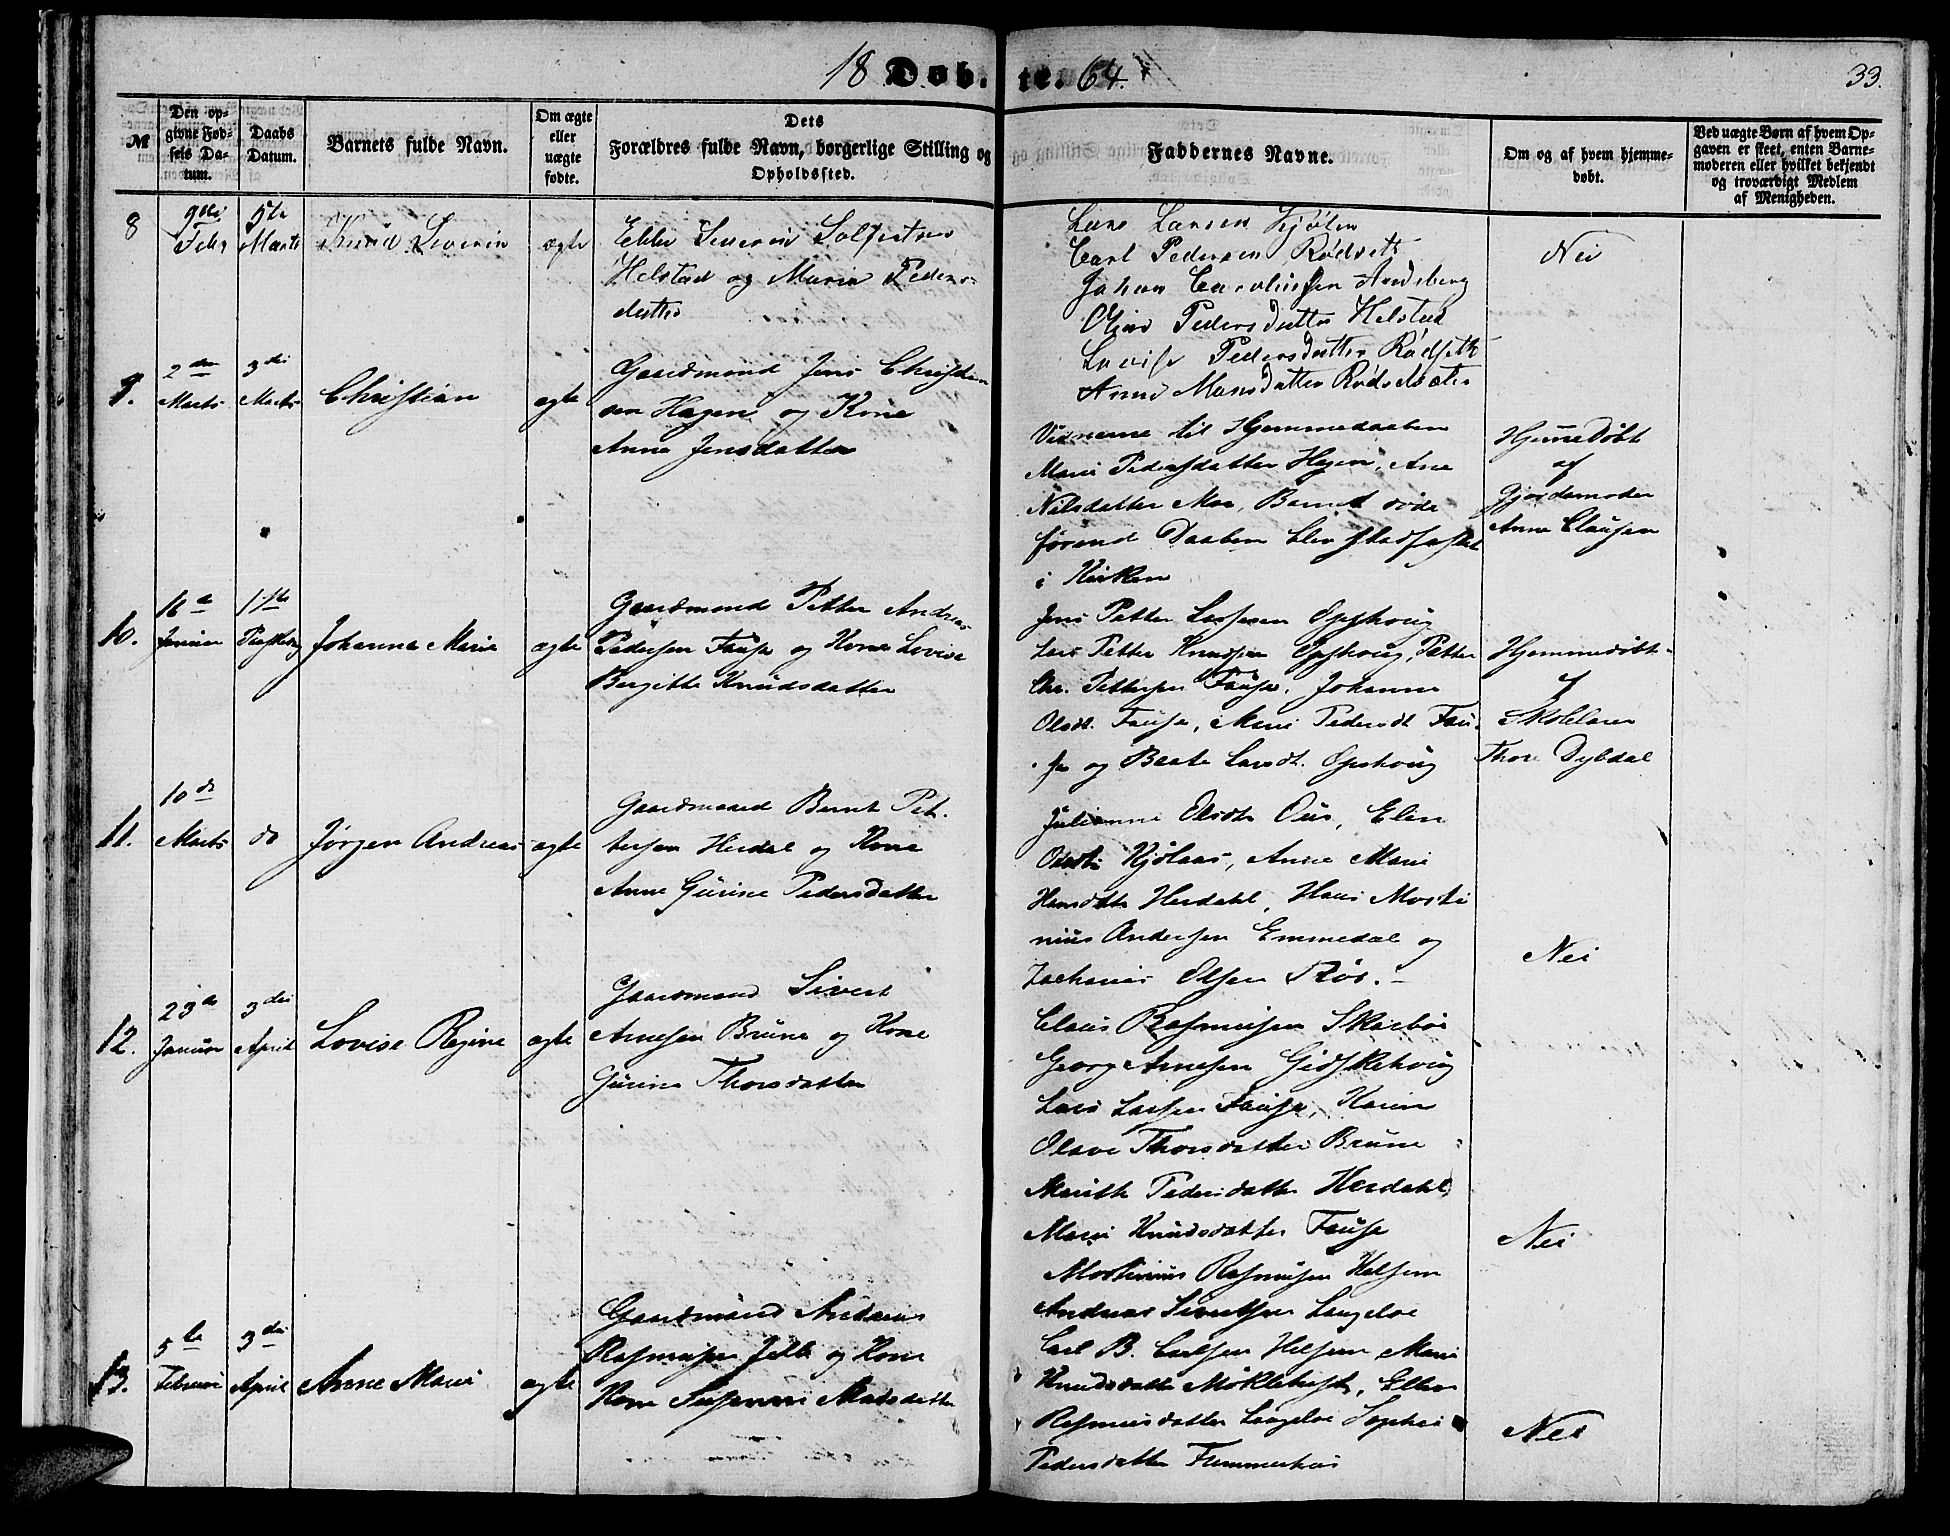 18 Døb- te. 64.
33.
№
Den op-
givne Fød-
sels Da-
tum.
Daabs
Datum.
Barnets fulde Navn.
Om ægte
eller
uægte
fødte.
Dets
Forældres fulde Navn, borgerlige Stilling og
Opholdssted.
Faddernes Navne.
Om og af hvem hjemme-
døbt.
Ved uægte Børn af hvem Op-
gaven er skeet, enten Barne-
moderen eller hvilket bekjendt
og troværdigt Medlem
af Menigheden.
8
Febr
Marts
Severin
ægte
Helstad og Peders-
datter
Lars Larsen
Carl Pedersen Rødseth
Johan
Pedersdatter Helstad
Lovise Pedersdatter Rødseth
Anne
Nei
9.
2den
Marts
3die
Marts
Christian
ægte
Gaardmand Jens Christen
sen Hagen og Kone
Anne Jensdatter
Vidnerne til Hjemmedaaben
Marie Pedersdatter Hagen, Ane
Nilsdatter Moa, Barnet døde
førend Daaben blev stadfæstet
i Kirken
Hjemedøbt
af
Gjordemoder
Anne Clausen
10.
16de
Januar
Johanne Marie
ægte
Gaardmand Petter Andreas
Pedersen Fausa og Kone Lovise
Bergitte Knudsdatter
Jens Petter Larsen Opshoug
Lars Petter Knudsen Opshoug, Petter
Chr. Pettersen Fausa, Johanne
Olsdt. Fausa, Marie Pedersdt Fau-
sa og Beate Larsdt. Opshoug
Hjemmedøbt
af
Skolelærer
Thore Dybdal
11.
10de
Marts
do
Jørgen Andreas
ægte
Gaardmand Bernt Pet-
tersen Herdal og Kone
Anne Gurine Pedersdatter
Julianne Olsdtr Ous, Elen
Kjølaas, Anne Marie
Hansdtr Herdahl, Hans Marti
nius Andersen Emmedal og
Zacharias Olsen
Nei
12.
23de
Januar
3die
April
Lovise Regine
ægte
Gaardmand Sivert
Arnesen Brune og Kone
Gurine Thorsdatter
Claus Rasmusen Skarbø
Georg Arnesen Gidskehoug
Lars Larsen Fausa, Karen
Olave Thorsdatter Brune
Marith Pedersdatter Herdahl
Marie Knudsdatter Fausa
Nei
13.
5te
Februar
3die
April
Anne Marie
ægte
Gaardmand Andreas
Rasmusen og Kone
Kone Susanne Madsdatter
Martinius Rasmusen Helsem
Andreas Sivertsen Langeloe
Carl B. Carlsen Helsem Marie
Knudsdatter Møklehust, Ellen
Rasmusdatter Langeloe Sophie
Pedersdatter
Nei